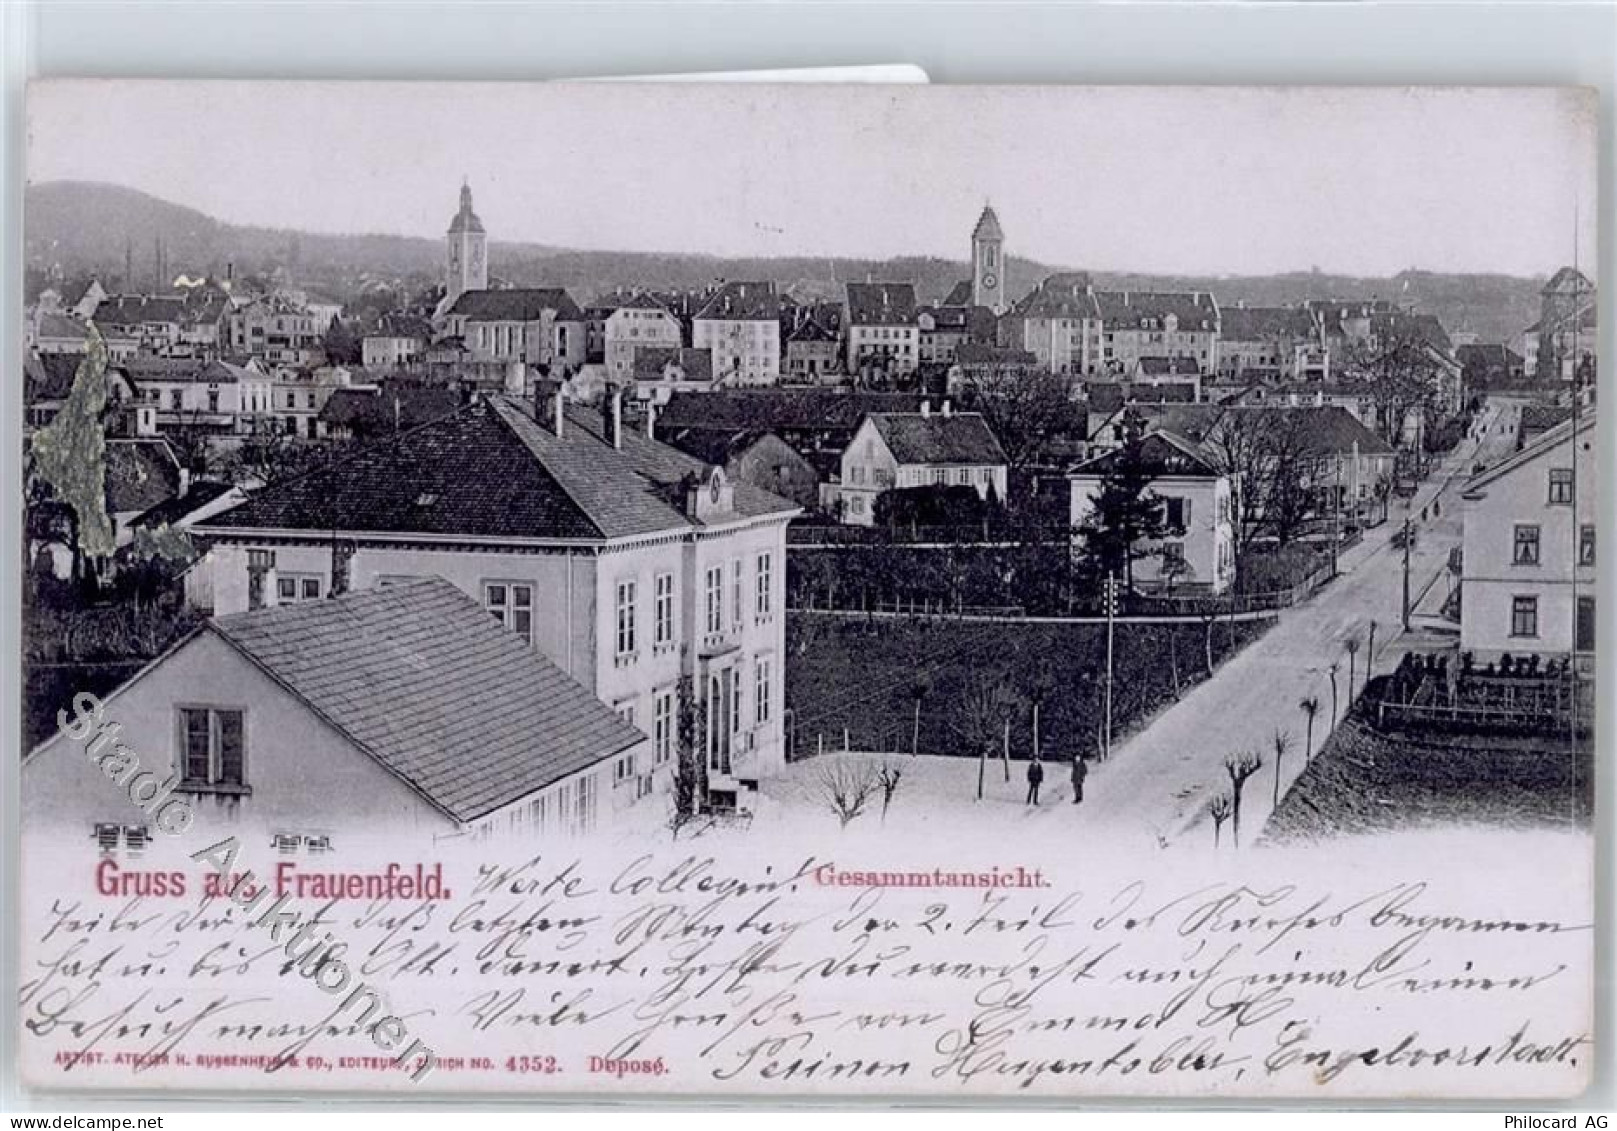 Gruss aus Frauenfeld. Werte Collegin! Gesammtansicht.
Teile Dir mit daß letzten Montag der 2. Teil des Kurses begonnen
hat u. bis Okt. dauert. Hoffe Du werdest auch einmal einen
Besuch machen. Viele Grüße von Emma H.
ARTIST. ATELIER H. GUGGENHEIM & CO., EDITEURS, ZÜRICH NO. 4352. Deposé. Hugentobler, Engelvorstadt.
Stade Auktionen
Philocard AG